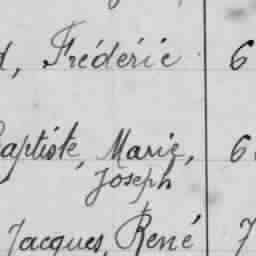 d, Frédéric 6
Baptiste, Marie, 6
Joseph
Jacques, René 7